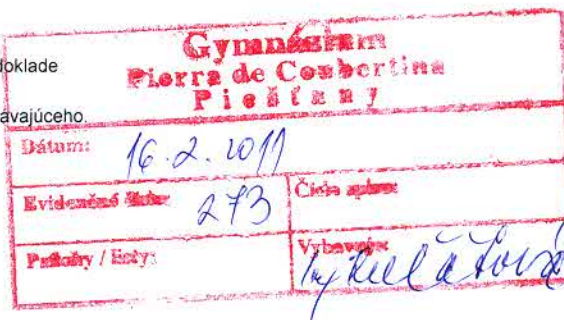 doklade
ávajúceho.
Gymnázium
Pierra de Coubertina
Piešťany
Dátum: 16.2.2011
Evidenčné číslo: 273
Číslo spisu:
Prílohy / listy:
Vybavuje: